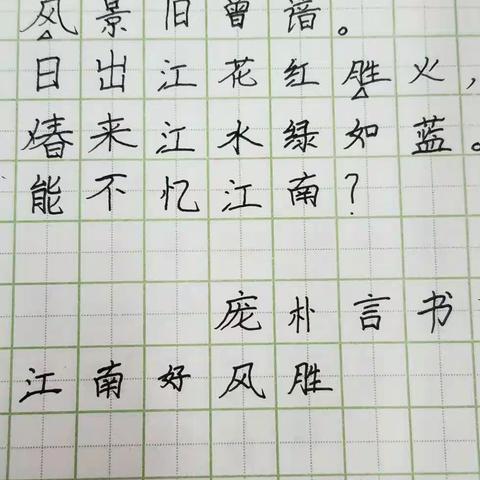 风景旧曾谙。
日出江花红胜火，
春来江水绿如蓝。
能不忆江南？
庞朴言书
江南好风胜